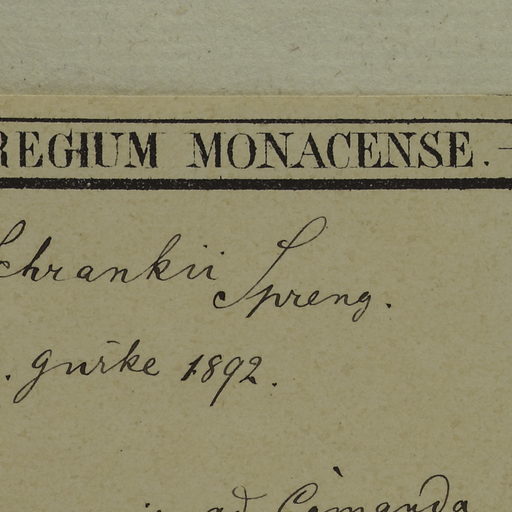 REGIUM MONACENSE. –
Schrankii Spreng.
. Gürke 1892.
ad Comanda